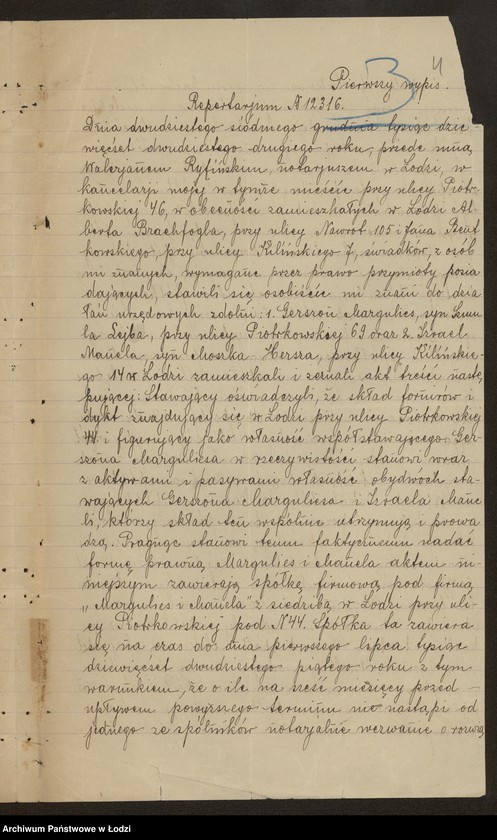 4
3
Pierwszy wypis.
Repertarjum N 12316.
Dnia dwudziestego siódmego grudnia tysiąc dzie-
więćset dwudziestego drugiego roku, przede mną,
Walerjanem Ryfińskim, notarjuszem w Łodzi, w
kancelarji mojej w tymże mieście przy ulicy Piotr-
kowskiej 46, w obecności zamieszkałych w Łodzi Al-
berta Brachfogla, przy ulicy Nawrot 105 i Jana Beut
kowskiego, przy ulicy Kilińskiego 7, świadków, z osób
mi znanych, wymagane przez prawo przymioty posia
dających, stawili się osobiście mi znani do dzia
łań urzędowych zdolni: 1. Gerszon Margulies, syn Szmu
la Lejba, przy ulicy Piotrkowskiej 69 oraz 2. Izrael
Manela, syn Moszka Hersza, przy ulicy Kilińskie-
go 14 w Łodzi zamieszkali i zeznali akt treści nastę
pującej: Stawający oświadczyli, że skład fornirów i
dykt znajdujący się w Łodzi przy ulicy Piotrkowskiej
44 i figurujący jako własność współstawającego Ger-
szona Marguliesa w rzeczywistości stanowi wraz
z aktywami i pasywami własność obydwóch sta-
wających Gerszona Marguliesa i Izraela Mane
li, którzy skład ten wspólnie utrzymują i prowa
dzą. Pragnąc stanowi temu faktycznemu nadać
formę prawną, Margulies i Manela aktem ni-
niejszym zawierają spółkę firmową pod firmą
„Margulies i Manela" z siedzibą w Łodzi przy uli-
cy Piotrkowskiej pod N 44. Spółka ta zawiera
się na czas do dnia pierwszego lipca tysiąc
dziewięćset dwudziestego piątego roku z tym
warunkiem, że o ile na sześć miesięcy przed -
upływem powyższego terminu nie nastąpi od
jednego ze spólników notarjalne wezwanie o rozwią
Archiwum Państwowe w Łodzi